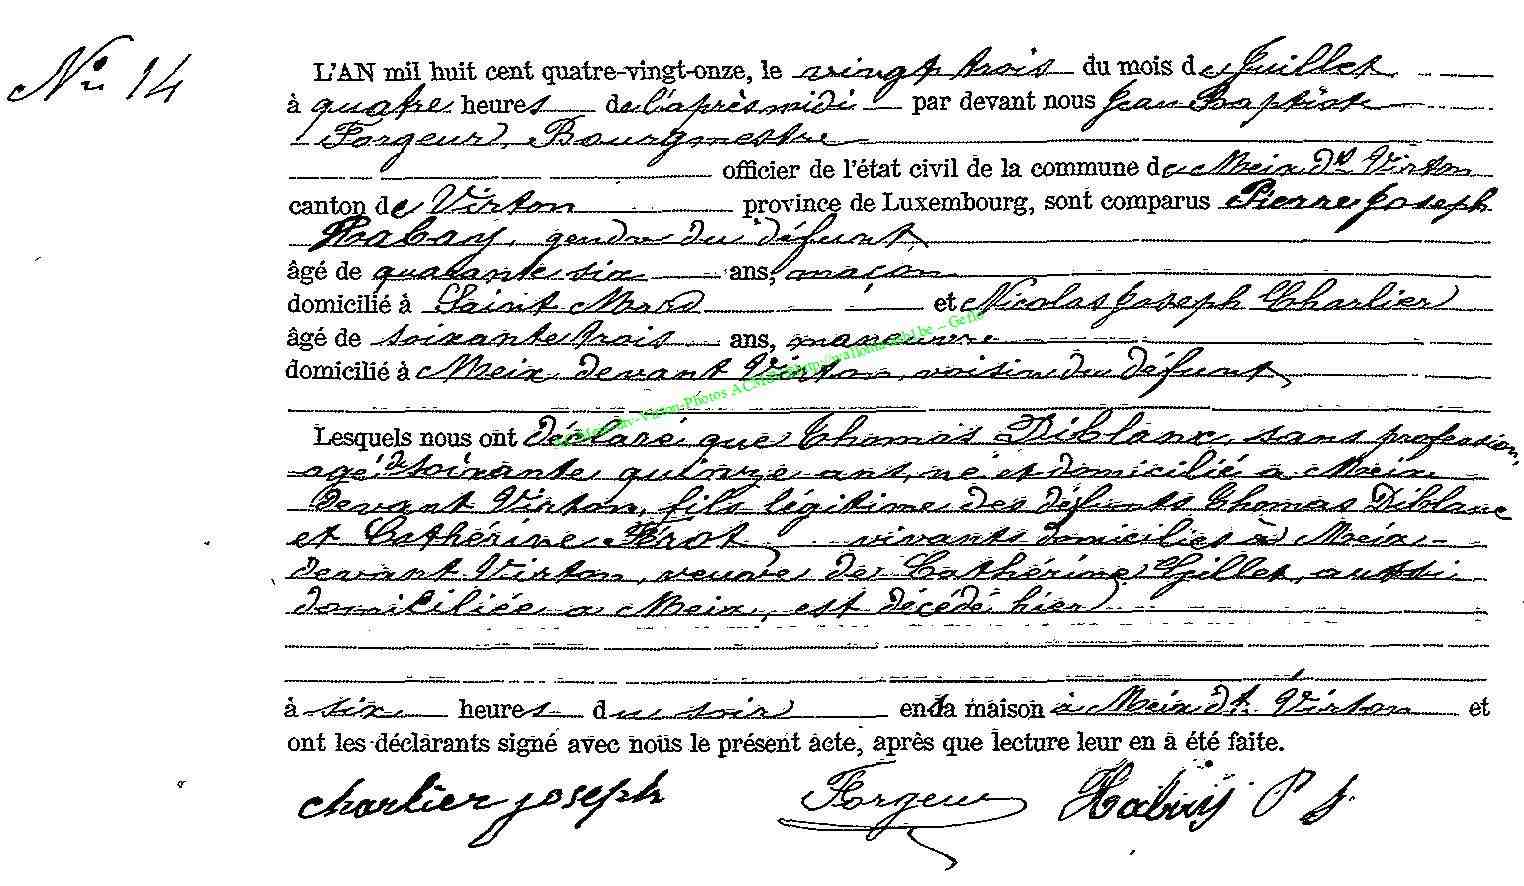 No 14
L'AN mil huit cent quatre-vingt-onze, le vingt trois du mois de Juillet
à quatre heures de l'après midi par devant nous Jean Baptiste
Forgeur, Bourgmestre
officier de l'état civil de la commune de Meix dt Virton
canton de Virton province de Luxembourg, sont comparus Pierre Joseph
Habay, gendre du défunt,
âgé de quarante six ans, maçon
domicilié à Saint Mard et Nicolas Joseph Charlier
âgé de soixante trois ans, manœuvre
domicilié à Meix devant Virton, voisin du défunt,
Lesquels nous ont déclaré que Thomas Diblanc, sans profession,
agé de soixante quinze ans, né et domicilié à Meix
devant Virton, fils légitime des défunts Thomas Diblanc
et Cathérine Frot, vivants domiciliés à Meix-
devant Virton, veuve de Cathérine Gillet, aussi
domiciliée a Meix, est décédé hier
à six heures du soir en la maison à Meix dt Virton et
ont les déclarants signé avec nous le présent acte, après que lecture leur en a été faite.
charlier joseph Forgeur Habay P J.